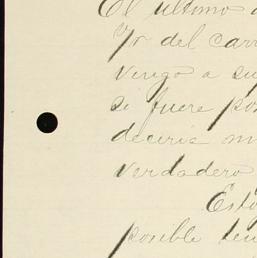 El último
Yo del carr
vengo a su
si fuere pos
deciria m
verdadero
Esto
posible ten